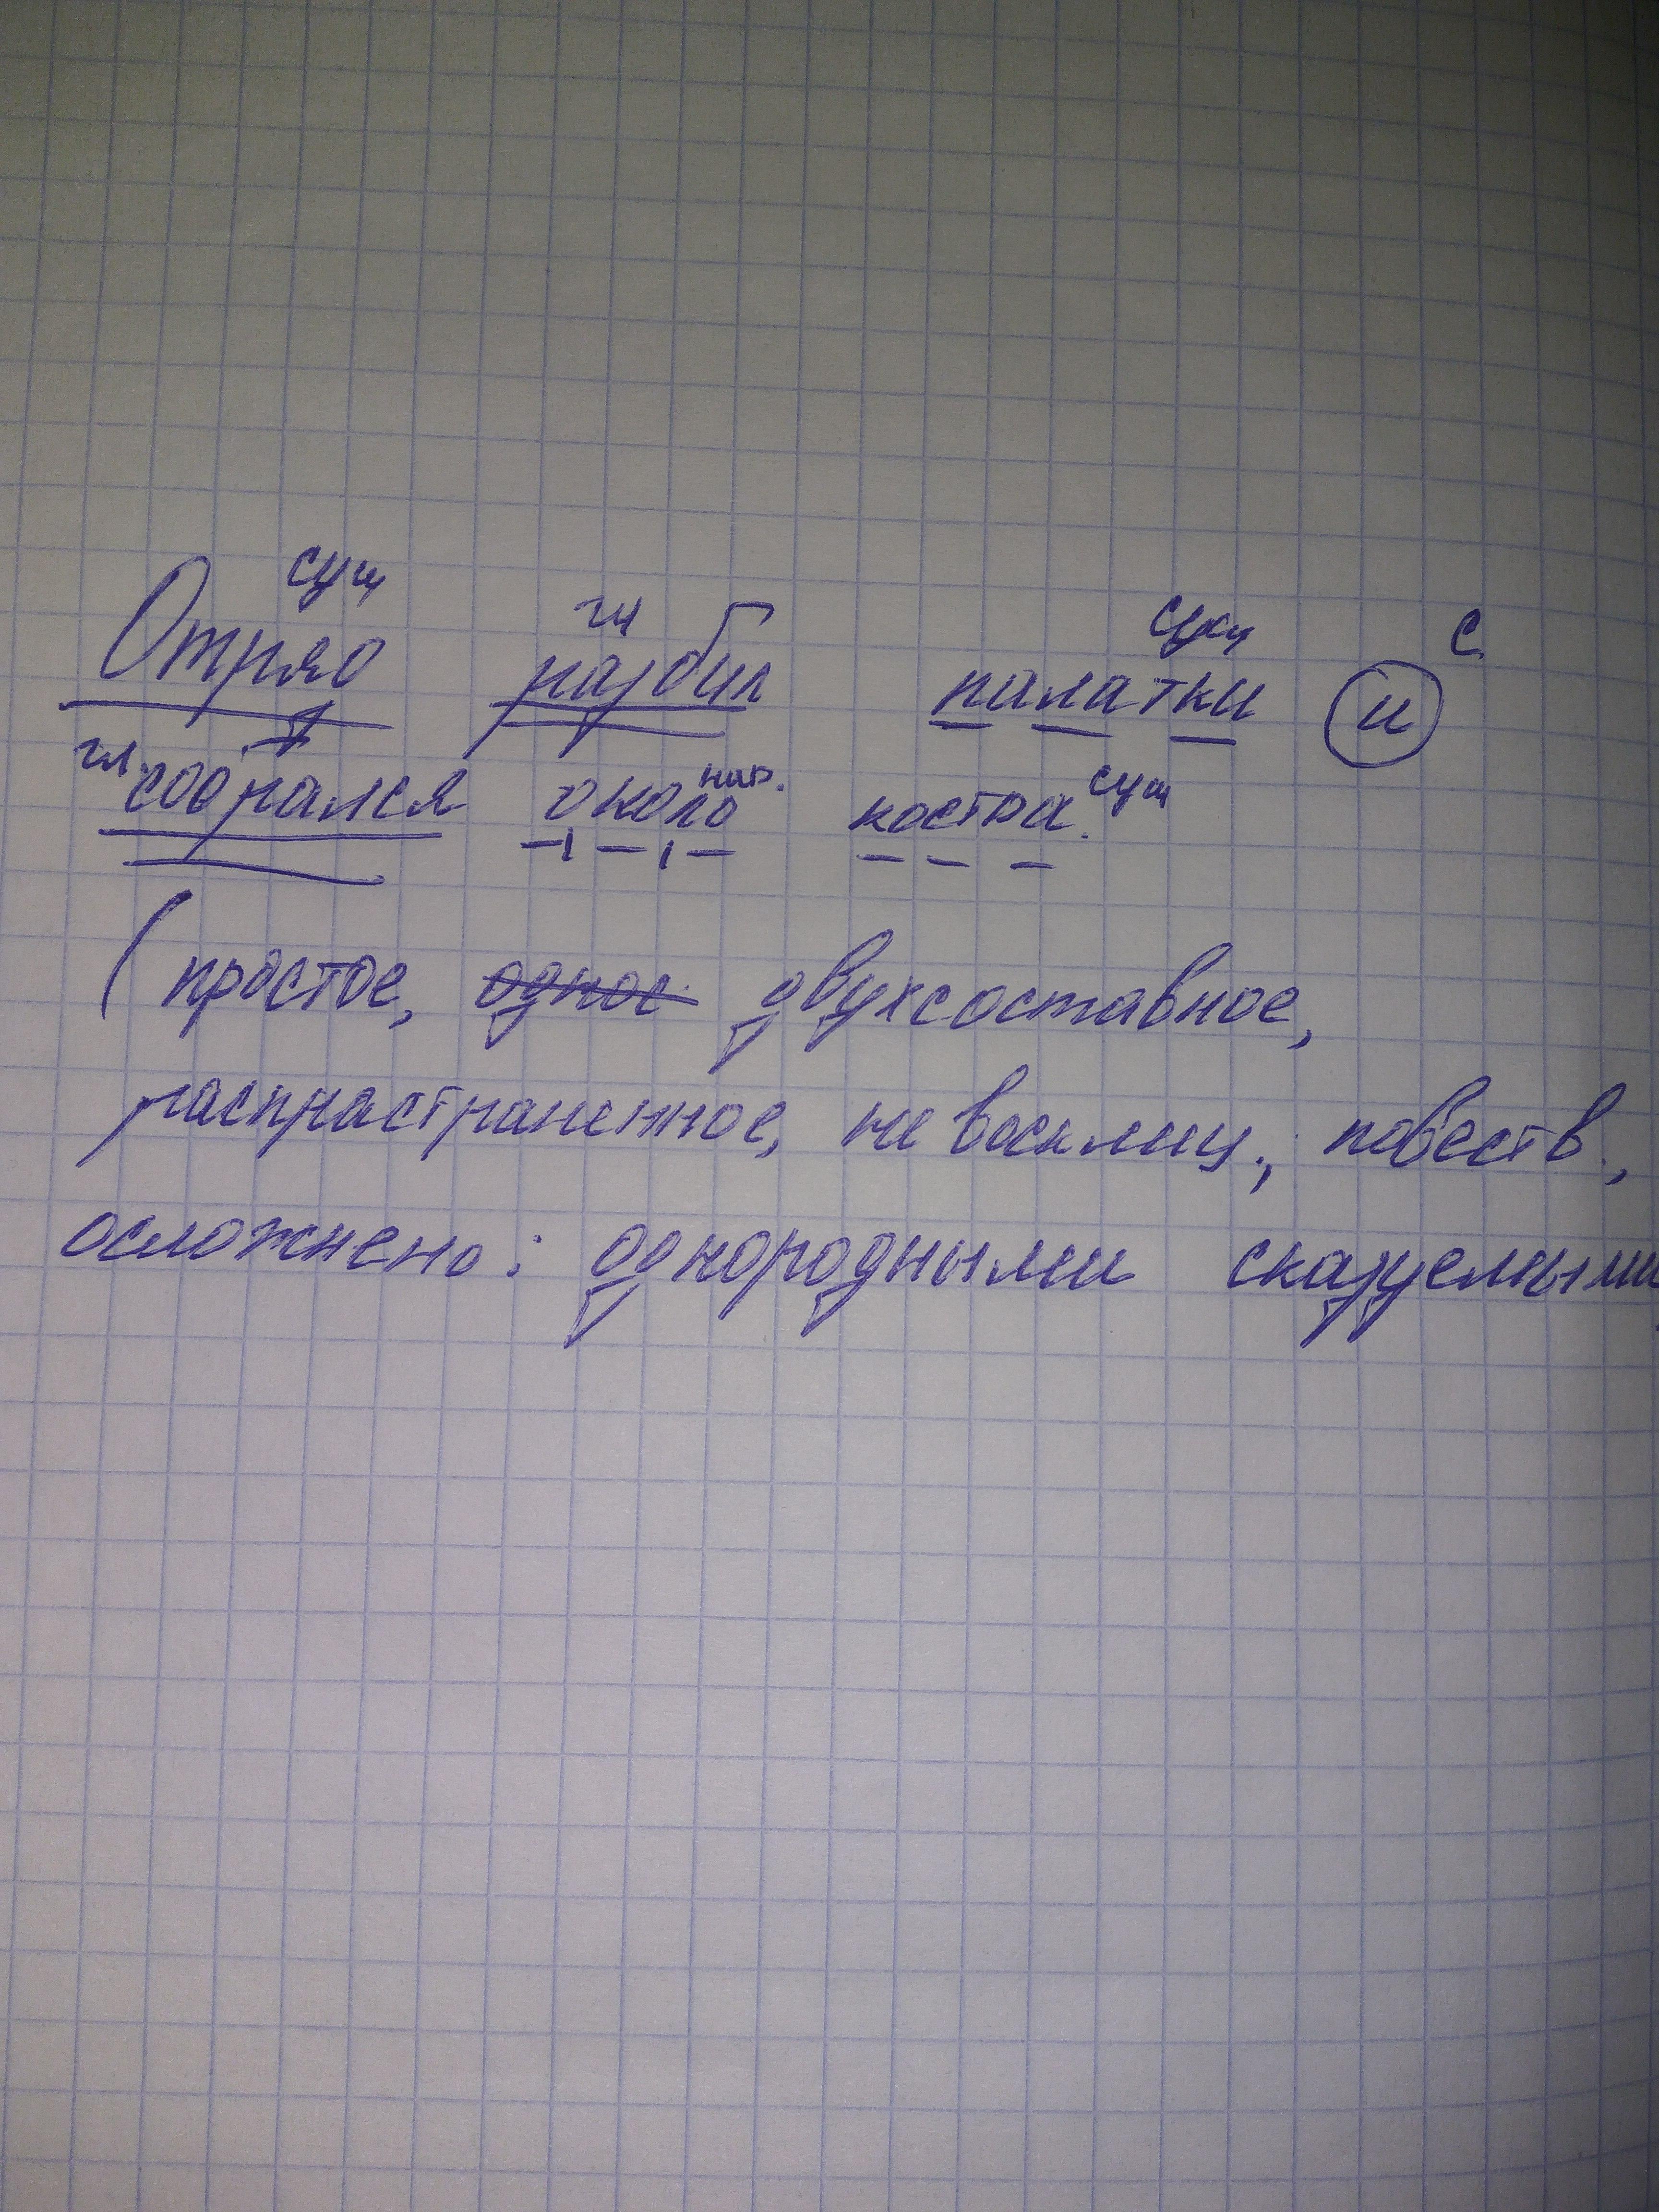 сущ гл сущ с.
Отряд разбил палатки и
гл. нар. сущ
собрался около костра.
(простое, однос двухсоставное,
распрастраненное, не восклиц., повеств.,
осложнено: однородными сказуемыми